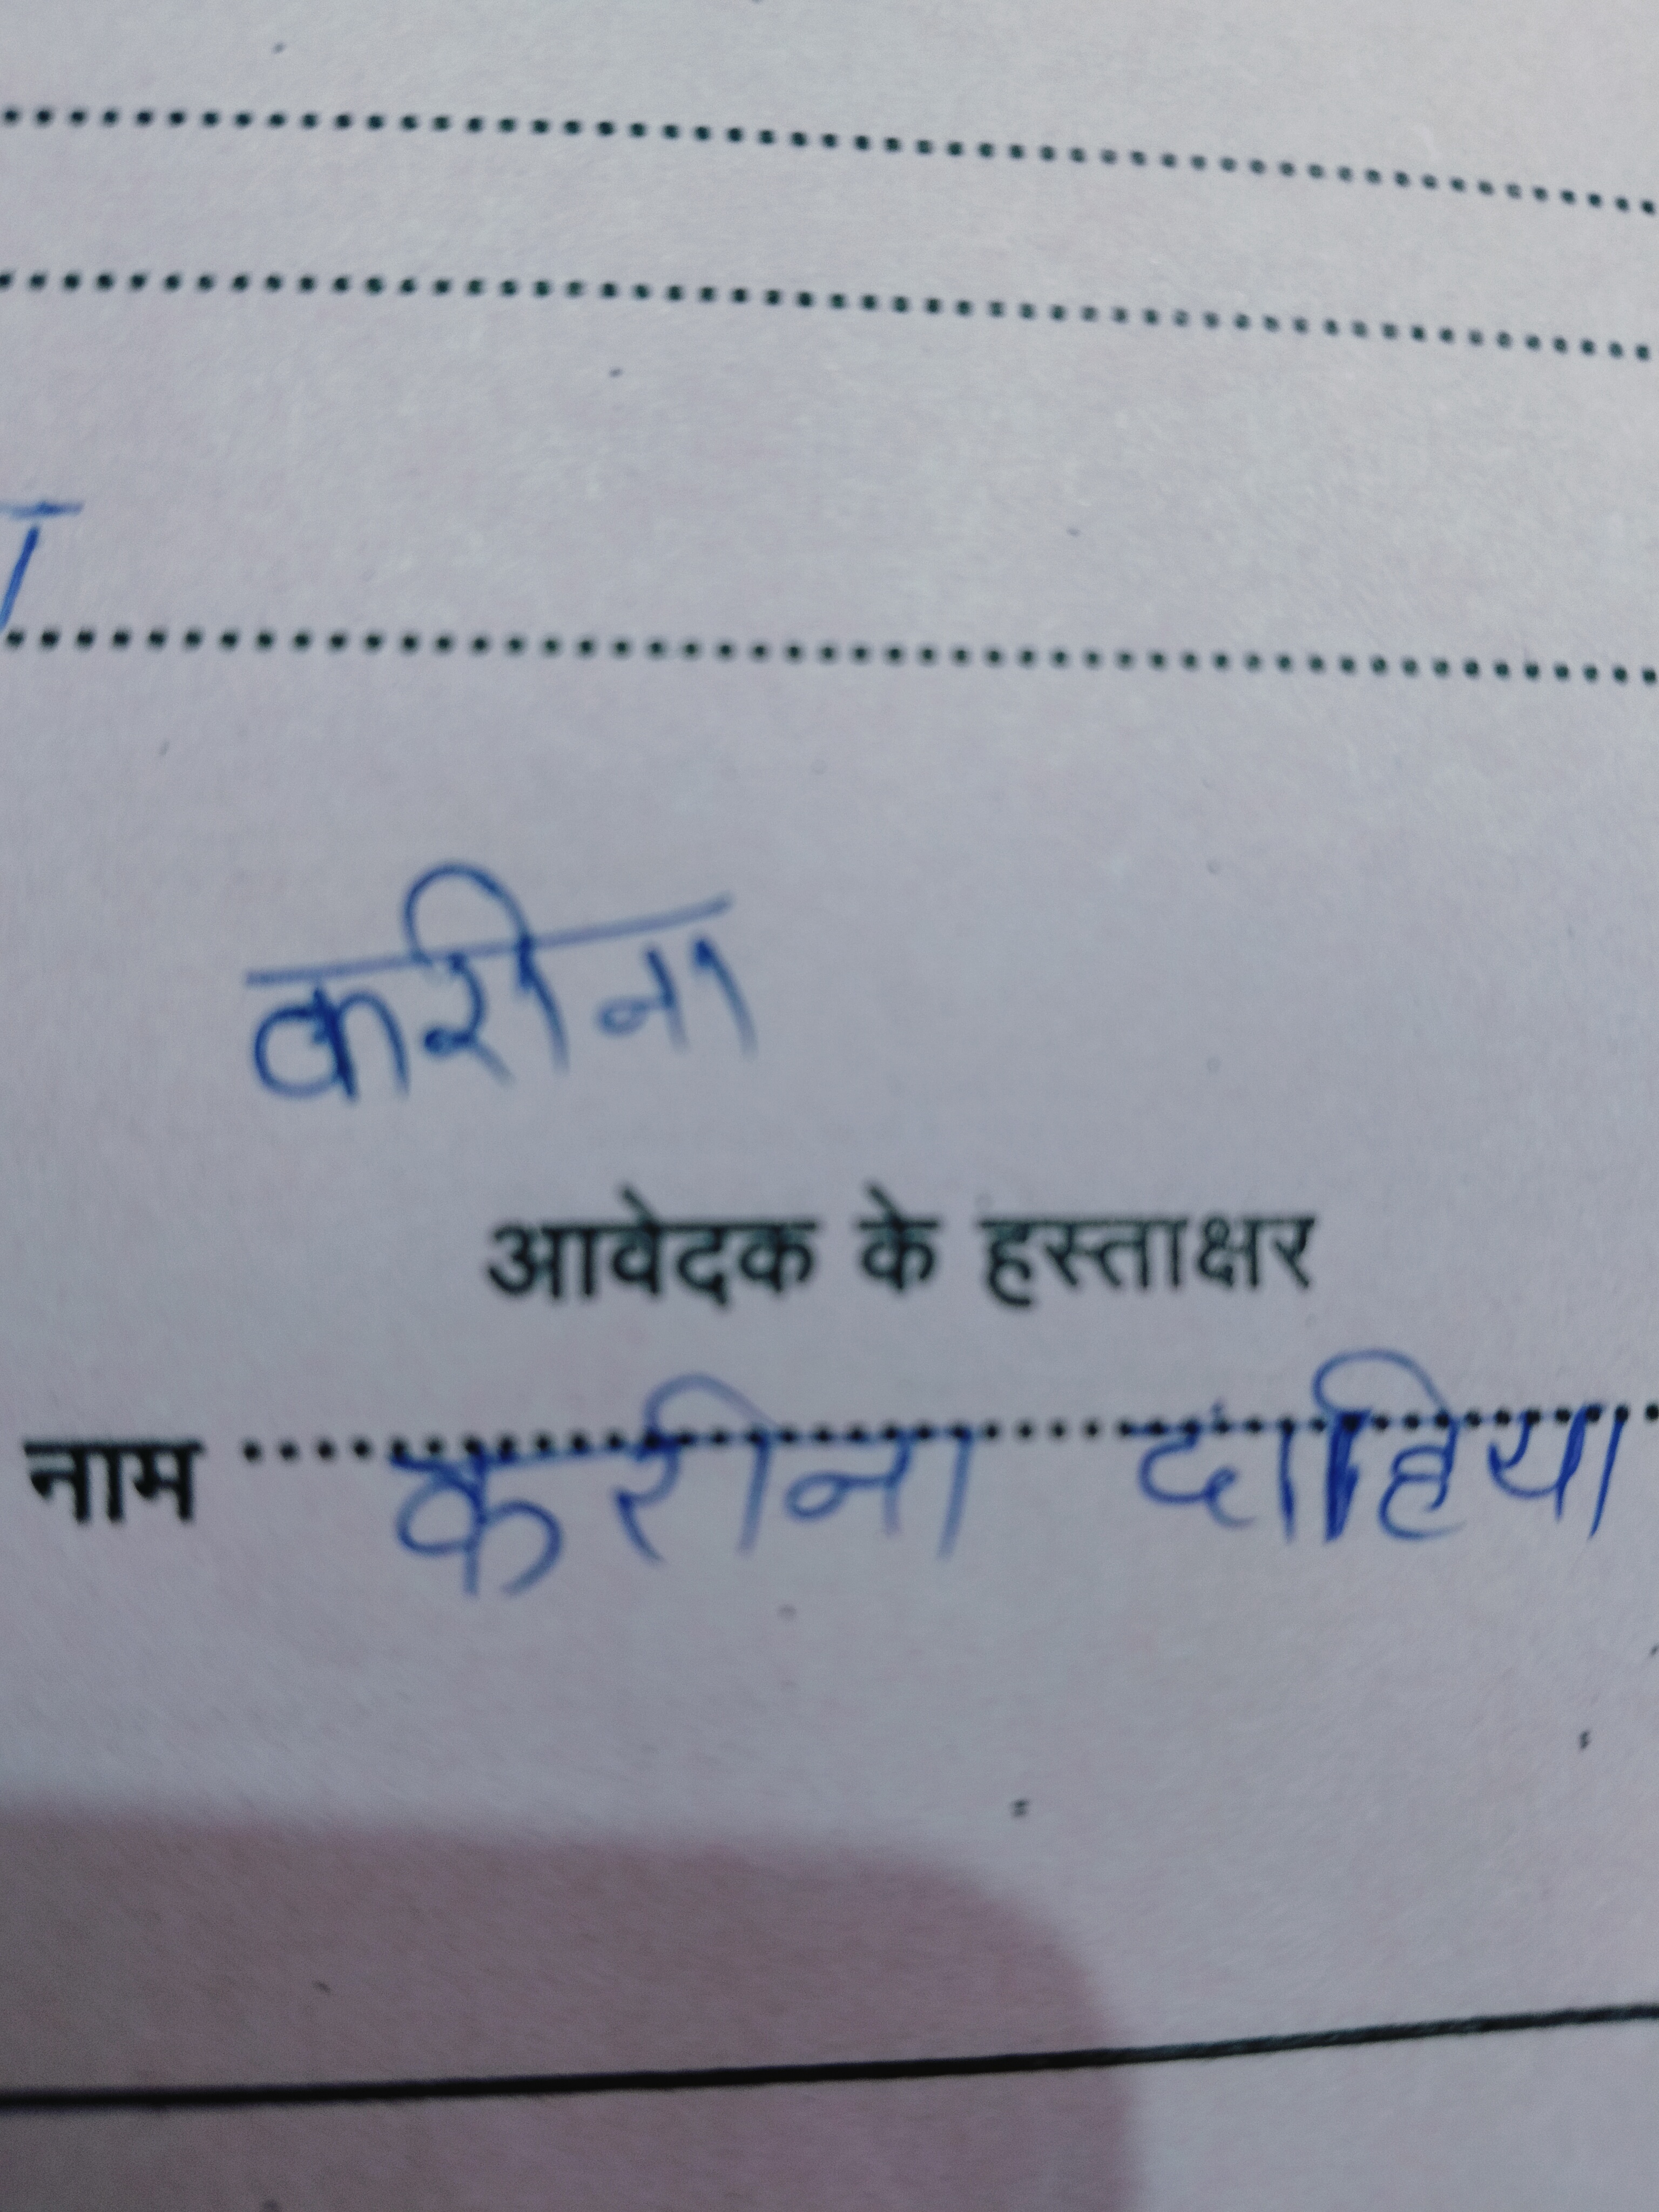 करीना
आवेदक के हस्ताक्षर
नाम करीना दाहिया